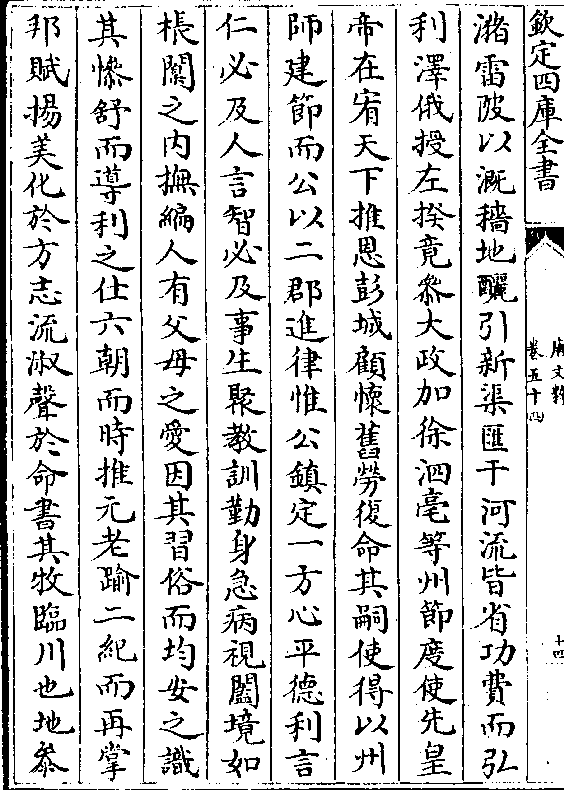 欽定四庫全書
唐文粹
卷五十四
十四
潴雷陂以溉穡地釃引新渠匯于河流皆省功費而弘
利澤俄授左揆竟叅大政加徐泗亳等州節度使先皇
帝在宥天下推恩彭城顧懷舊勞復命其嗣使得以州
師建節而公以二郡進律惟公鎮定一方心平德利言
仁必及人言智必及事生聚教訓勤身急病視闔境如
棖闑之内撫編人有父母之愛因其習俗而均安之識
其慘舒而導利之仕六朝而時推元老踰二紀而再掌
邦賦揚美化於方志流淑聲於命書其牧臨川也地叅